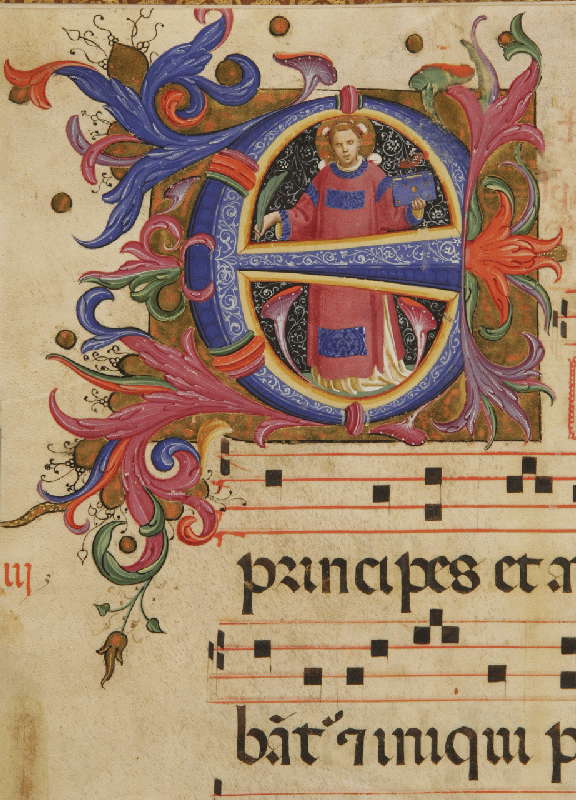 E
principes et a
iij
bāt᷑ ⁊ iniqui p